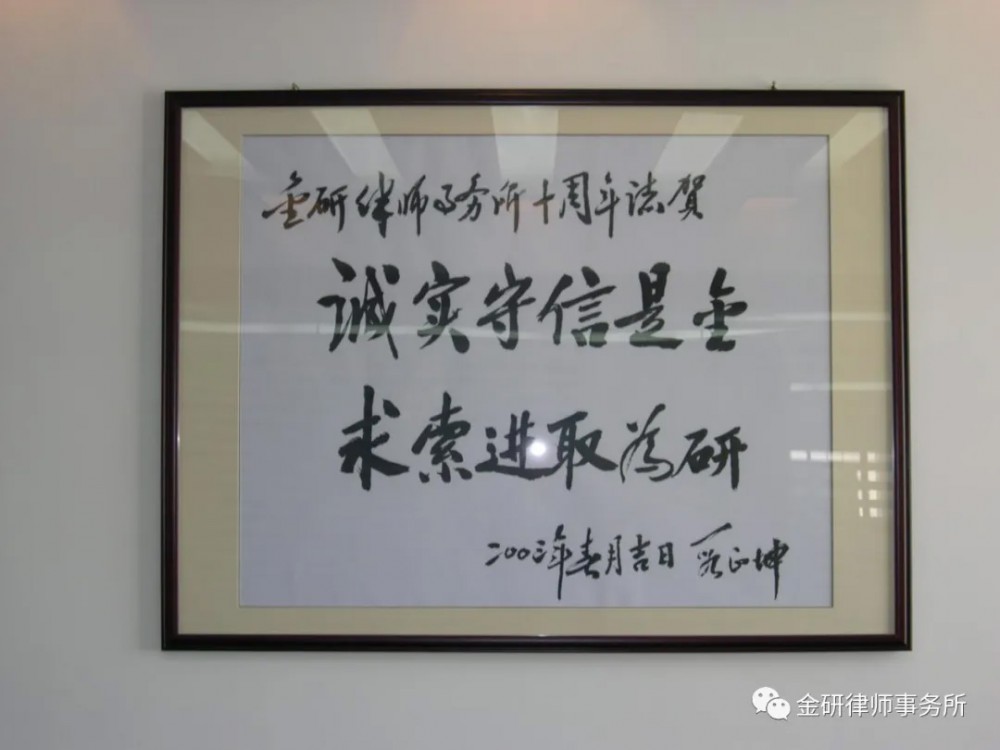 金研律师事务所十周年志贺
诚实守信是金
求索进取为研
二00三年春月吉日 正坤
金研律师事务所